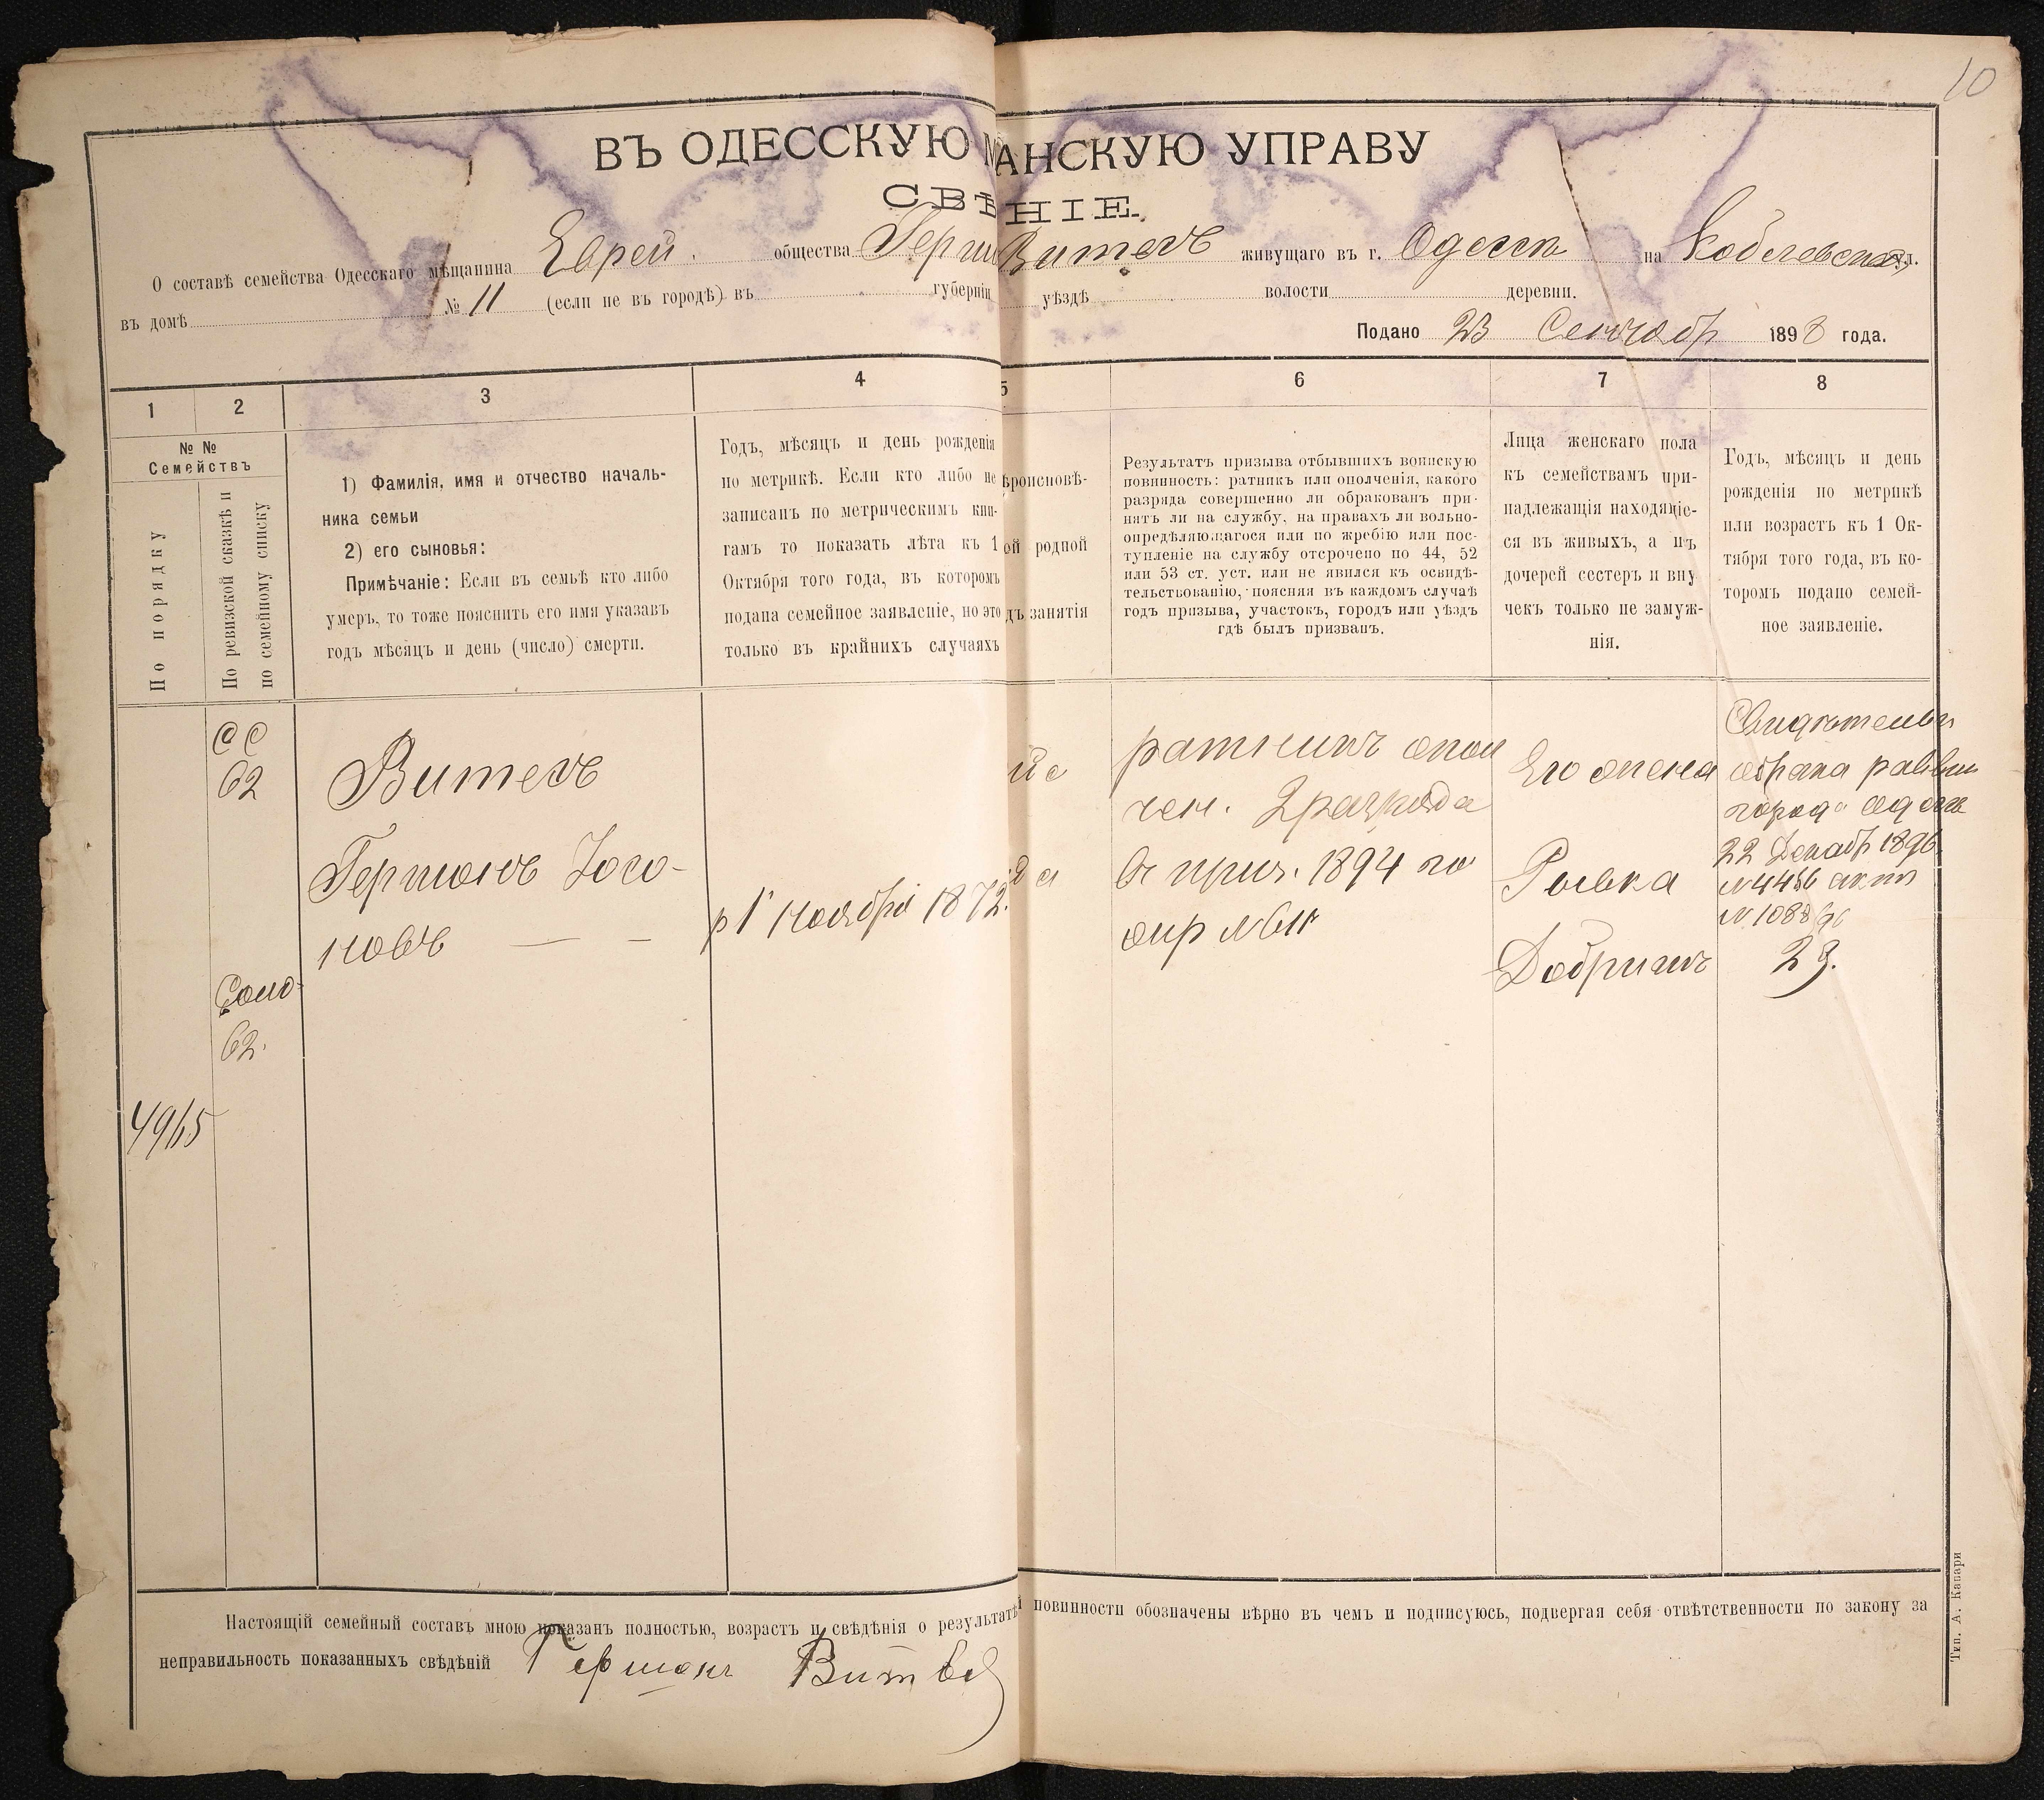 10
ВЪ ОДЕССКУЮ МАНСКУЮ УПРАВУ
СВѢНІЕ.
О составѣ семейства Одесскаго мѣщанина Еврей. общества Герш Витевъ живущаго въ г. Одессѣ на Коблевской ул.
въ домѣ № 11 (если не въ городѣ) въ губерніи уѣздѣ волости деревни.
Подано 23 Сентябр 1898 года.
1 2 3 4 5 6 7 8
№ №
Семействъ
По порядку
По ревизской сказкѣ и
по семейному списку
1) Фамилія, имя и отчество началь-
ника семьи
2) его сыновья:
Примѣчаніе: Если въ семьѣ кто либо
умеръ, то тоже пояснить его имя указавъ
годъ мѣсяцъ и день (число) смерти.
Годъ, мѣсяцъ и день рожденія
по метрикѣ. Если кто либо не
записанъ по метрическимъ кни-
гамъ то показать лѣта къ 1
Октября того года, въ которомъ
подана семейное заявленіе, но это
только въ крайнихъ случаяхъ
ѣроисповѣ-
ой родной
дъ занятія
Результатъ призыва отбывшихъ воинскую
повинность: ратникъ или ополченія, какого
разряда совершенно ли обракованъ при-
нятъ ли на службу, на правахъ ли вольно-
опредѣляющагося или по жребію или пос-
тупленіе на службу отсрочено по 44, 52
или 53 ст. уст. или не явился къ освидѣ-
тельствованію, поясняя въ каждомъ случаѣ
годъ призыва, участокъ, городъ или уѣздъ
гдѣ былъ призванъ.
Лица женскаго пола
къ семействамъ при-
надлежащія находящіе-
ся въ живыхъ, а изъ
дочерей сестеръ и вну
чекъ только не замуж-
нія.
Годъ, мѣсяцъ и день
рожденія по метрикѣ
или возрастъ къ 1 Ок-
тября того года, въ ко-
торомъ подано семей-
ное заявленіе.
СС
62
Витевъ
Гершонъ Іого-
новъ
р 1 ноября 1872.
ратникъ опол
чен. 2 разряда
въ приз. 1894 по
Его жена
Ривка
города Одессы
22 Декабр 1896
29.
62.
4965
Настоящій семейный составъ мною показанъ полностью, возрастъ и свѣдѣнія о результатѣ повинности обозначены вѣрно въ чемъ и подписуюсь, подвергая себя отвѣтственности по закону за
неправильность показанныхъ свѣдѣній Гершонъ Витвѳ
Тип. А. Капари